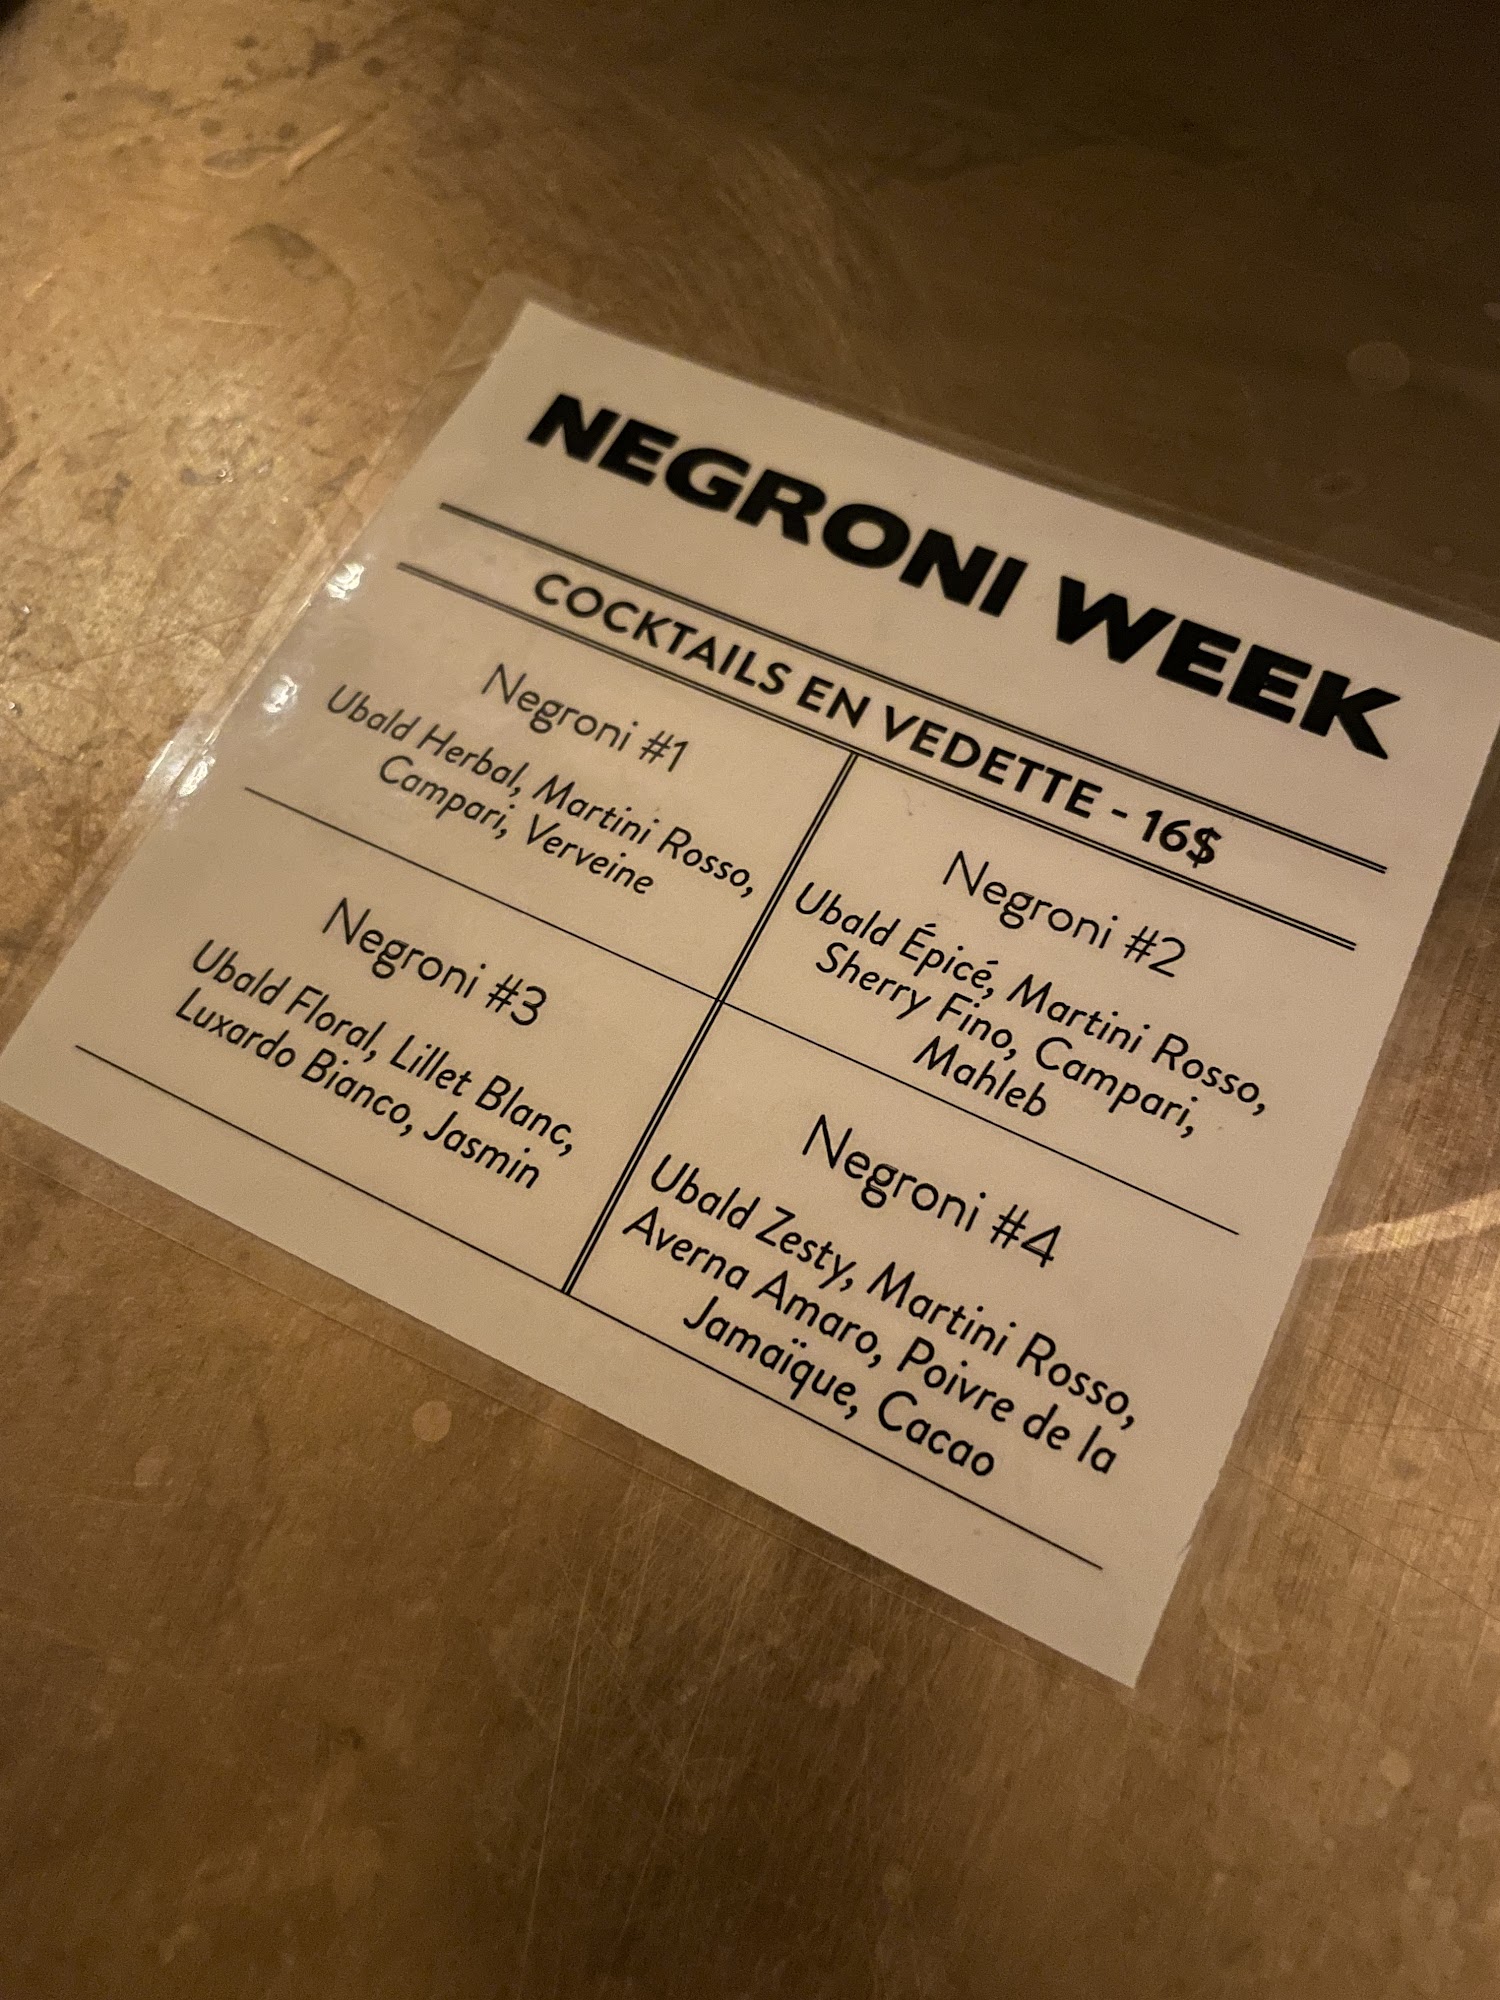 NEGRONI WEEK
COCKTAILS EN VEDETTE - 16$
Negroni #1
Ubald Herbal, Martini Rosso,
Campari, Verveine
Negroni #2
Ubald Épicé, Martini Rosso,
Sherry Fino, Campari,
Mahleb
Negroni #3
Ubald Floral, Lillet Blanc,
Luxardo Bianco, Jasmin
Negroni #4
Ubald Zesty, Martini Rosso,
Averna Amaro, Poivre de la
Jamaïque, Cacao